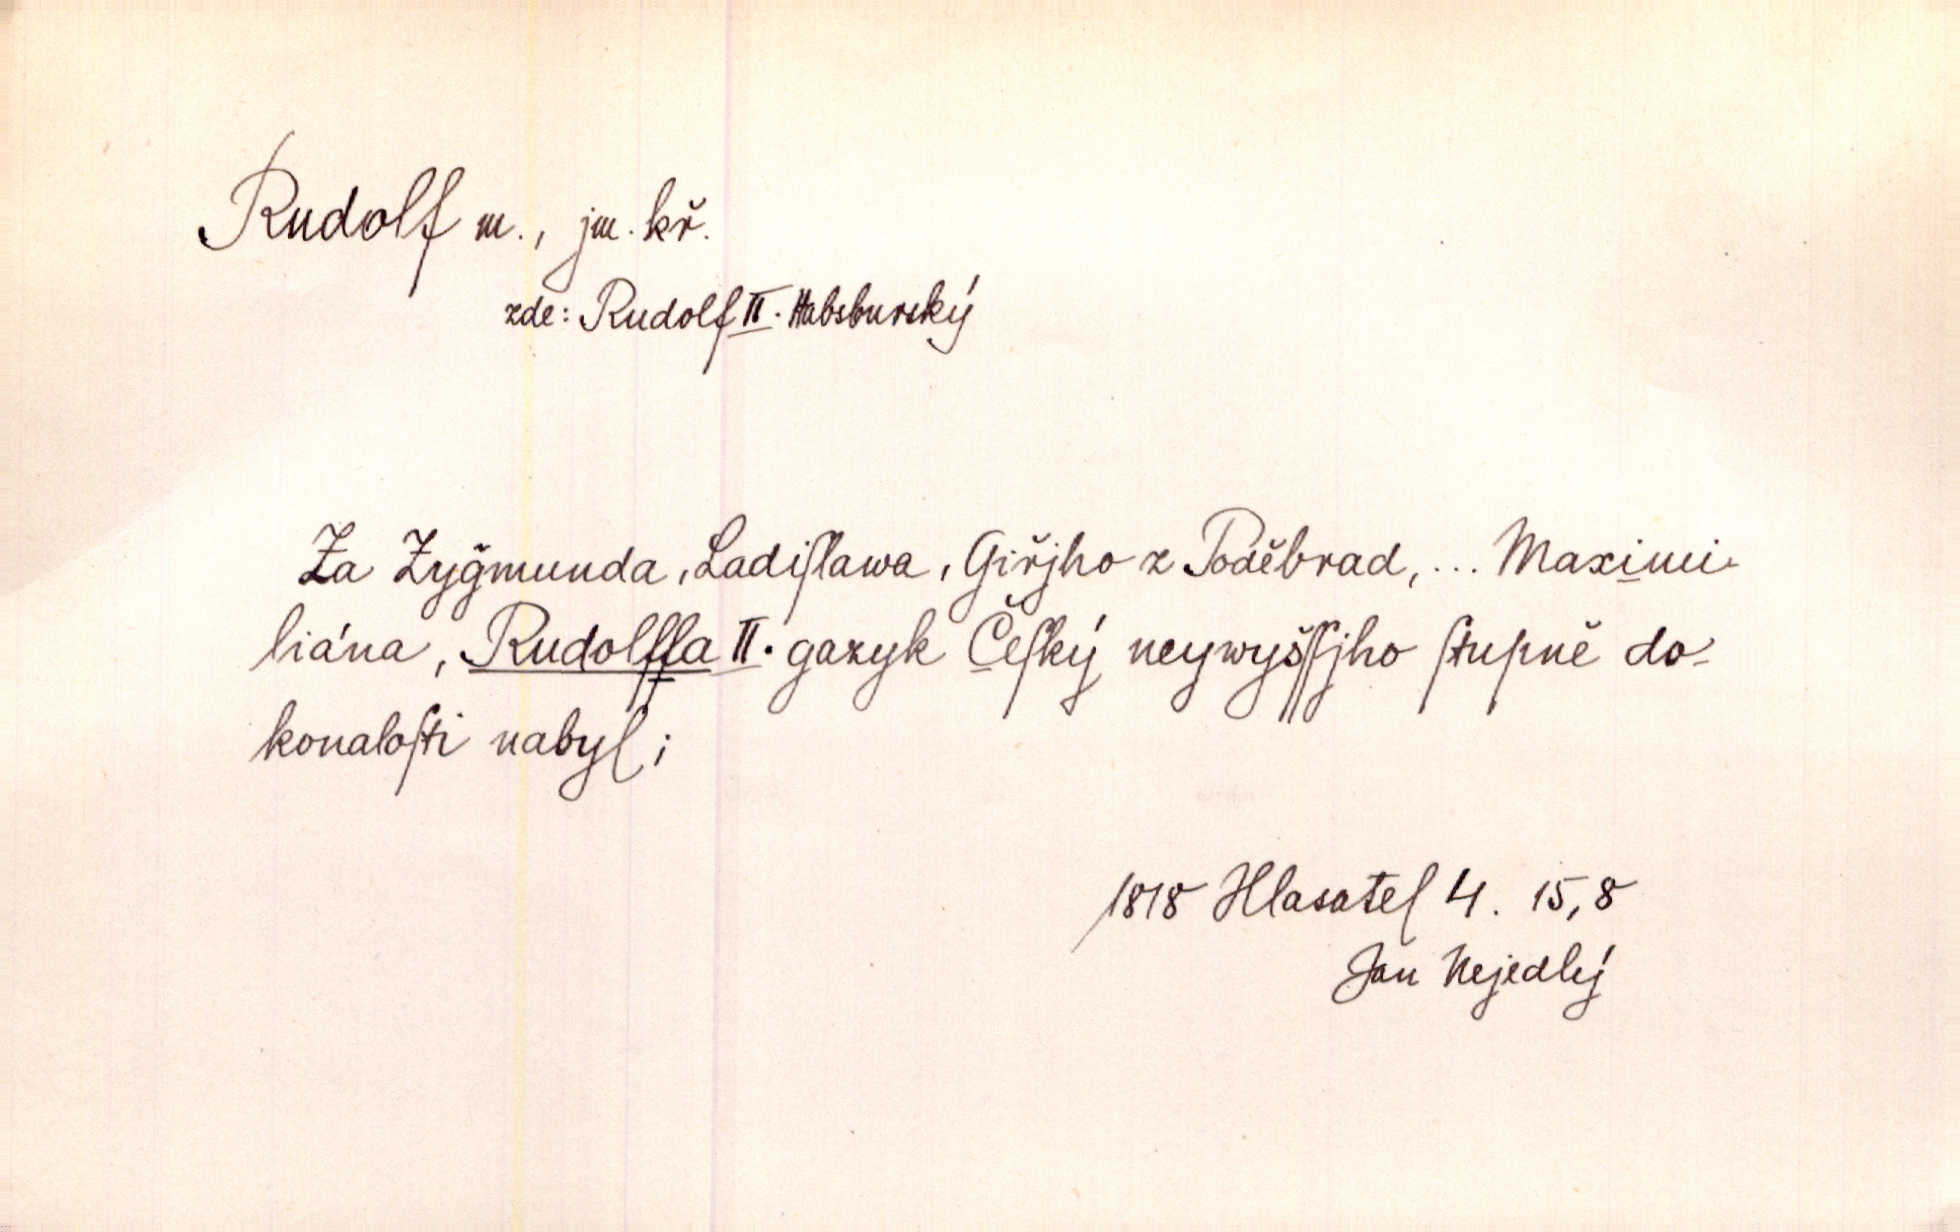 Rudolf m., jm. kř.
zde: Rudolf II. Habsburský
Za Zyǧmunda, Ladiſlawa, Giřjho z Poděbrad, ... Maximi-
liána, Rudolffa II. gazyk Čeſký neywyšſſjho ſtupně do-
konaloſti nabyl;
1818 Hlasatel 4. 15,8
Jan Nejedlý